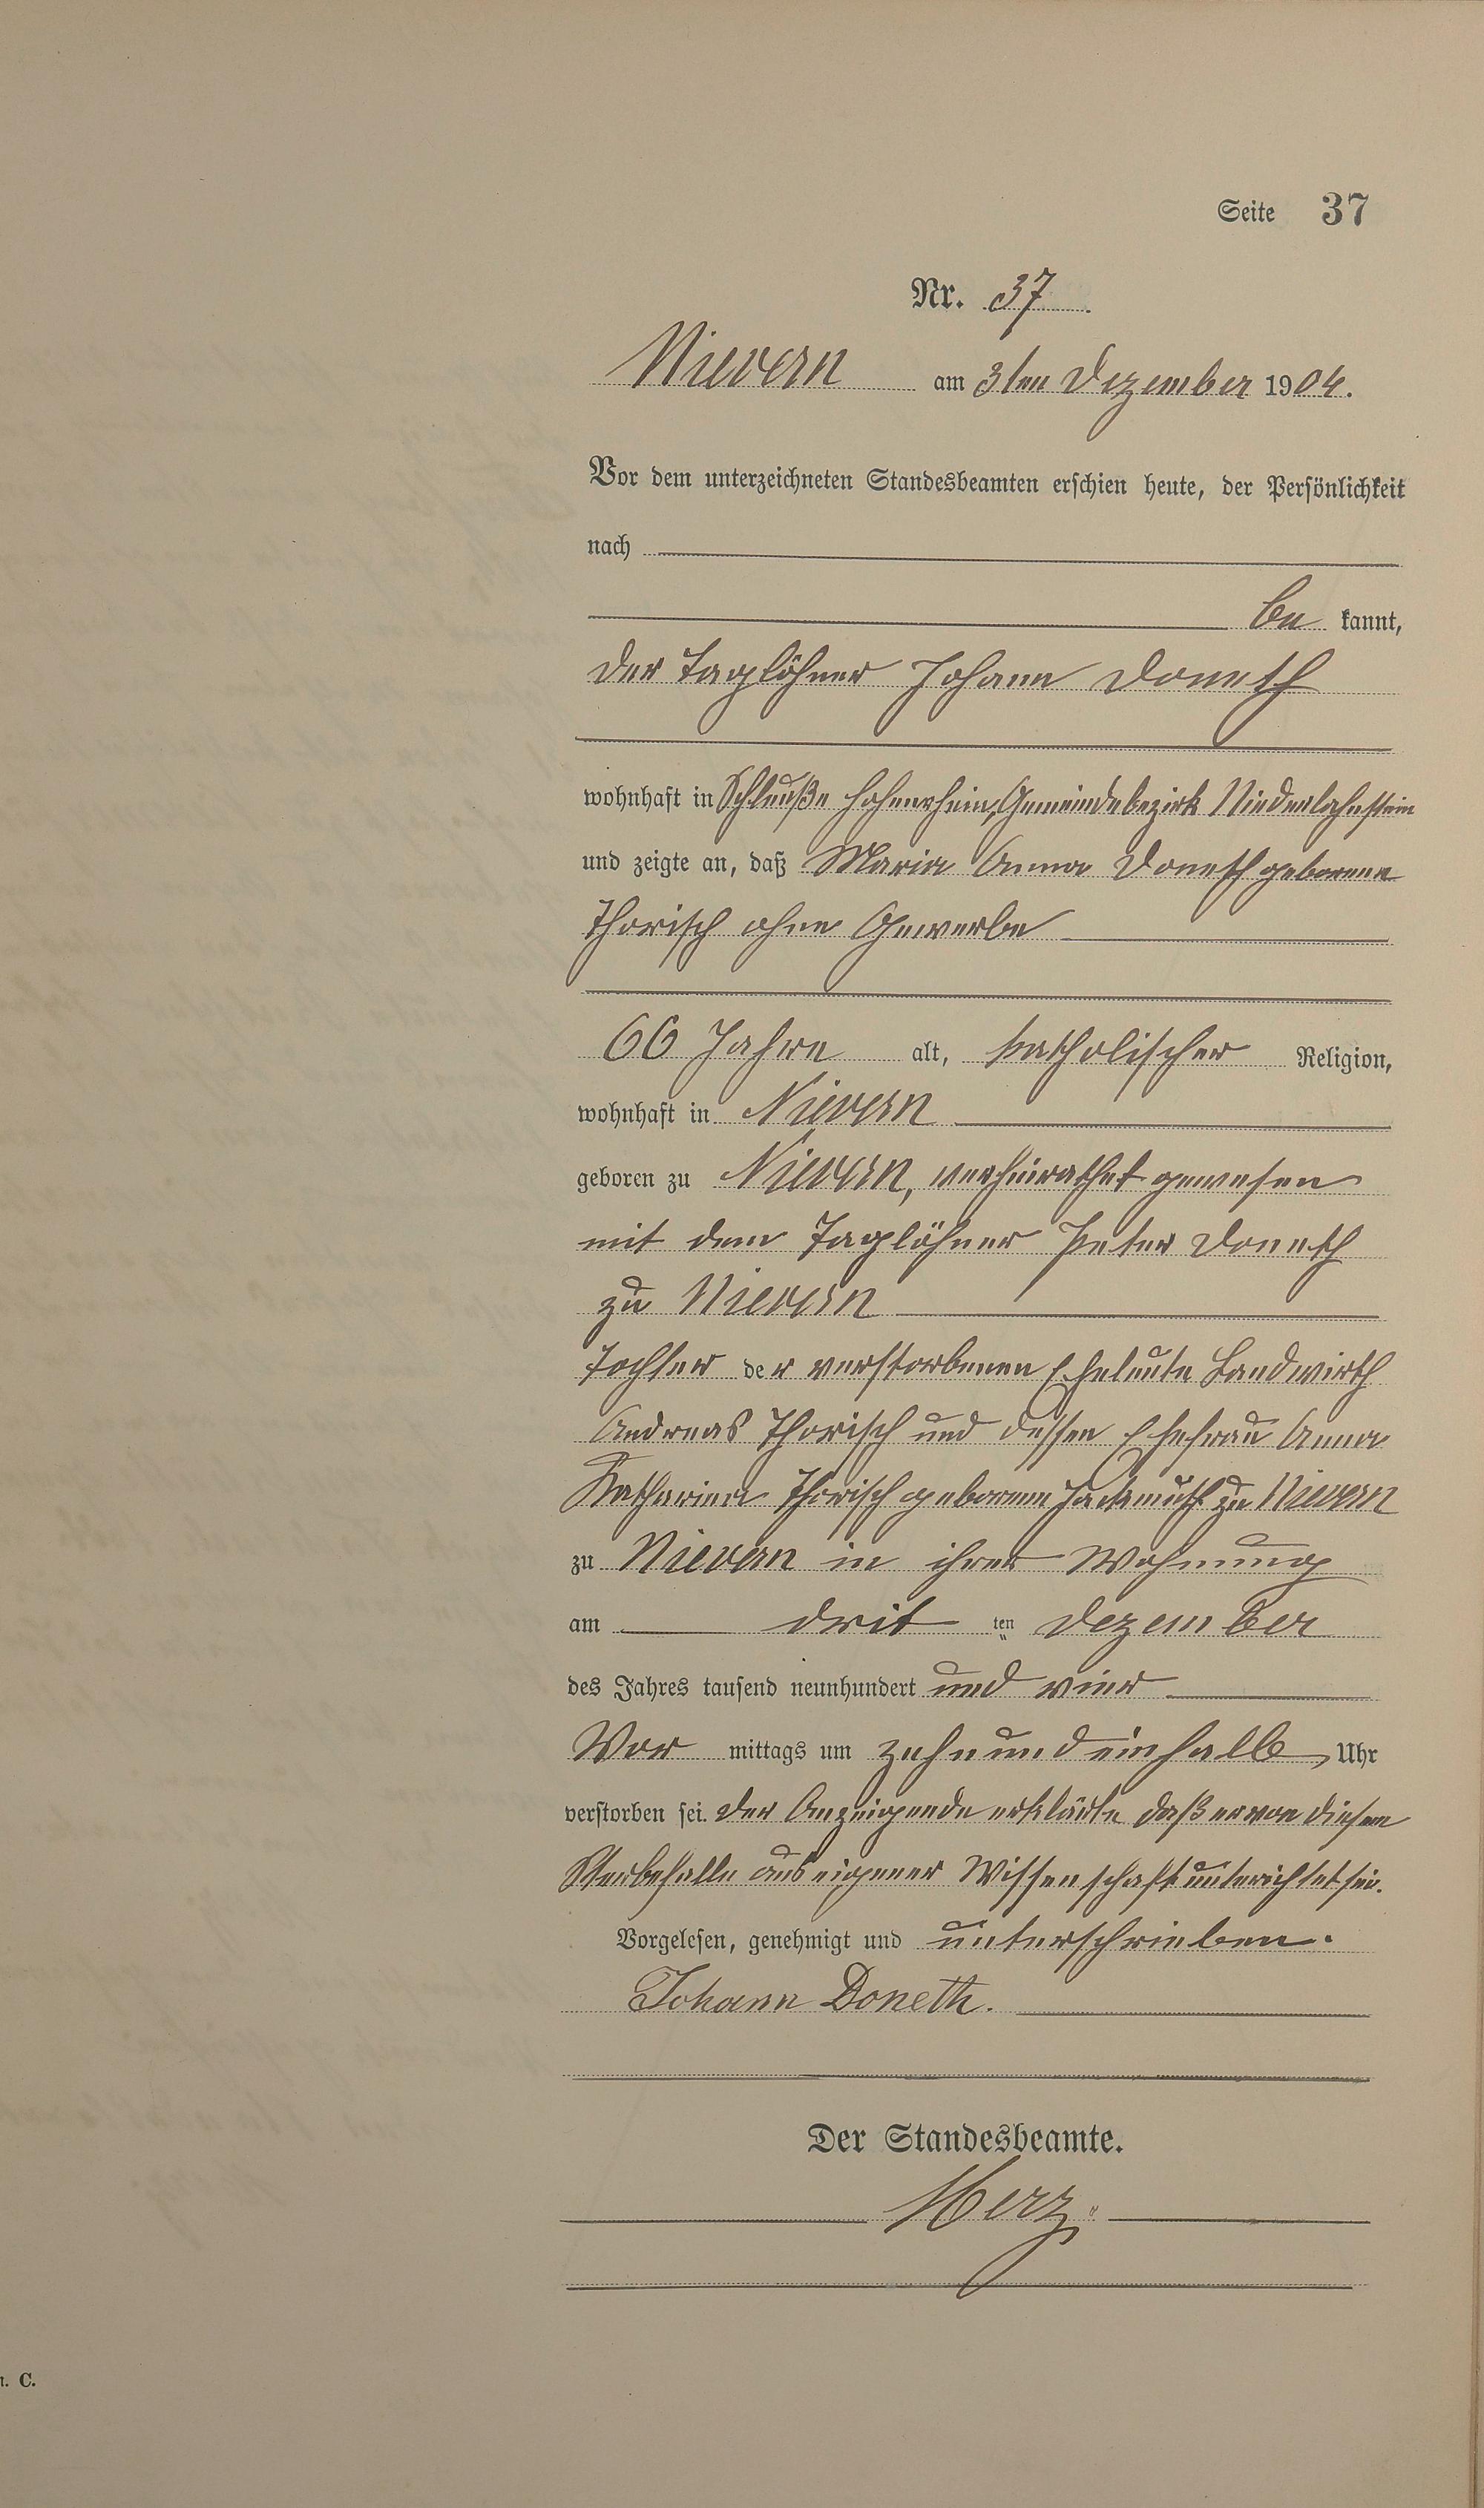 Seite 37
Nr. 37.
Nievern am 3ten Dezember 1904.
Vor dem unterzeichneten Standesbeamten erschien heute, der Persönlichkeit
nach
be kannt,
der Taglöhner Johann Doneth
wohnhaft in Schleuße Hohenrhein, Gemeindebezirk Niederlahnstein
und zeigte an, daß Maria Anna Doneth geborene
Thorisch ohne Gewerbe
66 Jahre alt, katholischer Religion,
wohnhaft in Nievern
geboren zu Nievern, verheirathet gewesen
mit dem Taglöhner Peter Doneth
zu Nievern
Tochter der verstorbenen Eheleute Landwirth
Andreas Thorisch und dessen Ehefrau Anna
Katharina Thorisch geborene zu Nievern
zu Nievern in ihrer Wohnung
am drit ten Dezember
des Jahres tausend neunhundert und vier
Vor mittags um zehnundeinhalb Uhr
verstorben sei. Der Anzeigende erklärte daß er von diesem
Sterbefalle aus eigener Wissenschaft unterichtet sei.
Vorgelesen, genehmigt und unterschrieben.
Johann Doneth.
Der Standesbeamte.
Herz
. C.